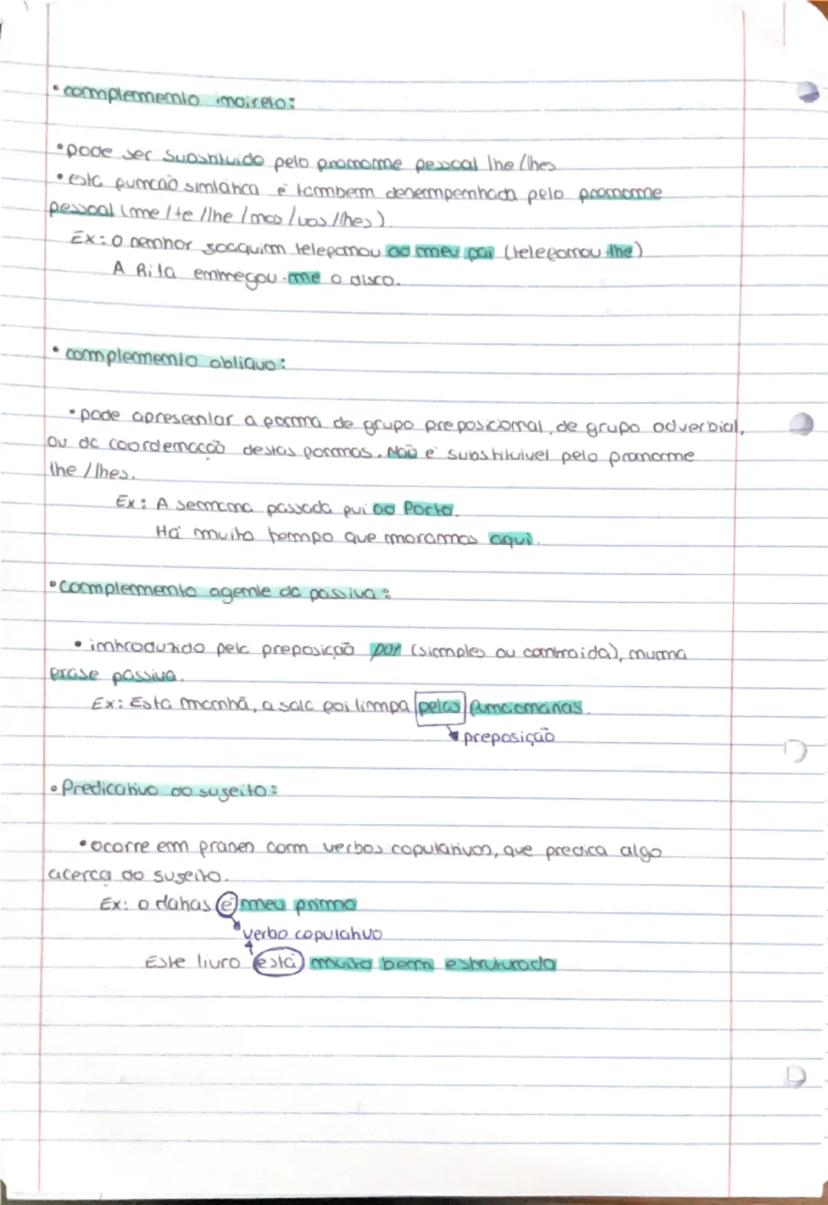 • complemento indireto:
• pode ser substituído pelo pronome pessoal lhe/lhes
• esta função sintática é também desempenhada pelo pronome
pessoal (me/te/lhe/nos/vos/lhes).
Ex: O senhor Joaquim telefonou ao meu pai (telefonou-lhe)
A Rita entregou-me o disco.
• complemento oblíquo:
• pode apresentar a forma de grupo preposicional, de grupo adverbial,
ou da coordenação destas formas. Não é substituível pelo pronome
lhe/lhes.
Ex: A semana passada fui ao Porto.
Há muito tempo que moramos aqui.
• complemento agente da passiva:
• introduzido pela preposição por (simples ou contraída), numa
frase passiva.
Ex: Esta manhã, a sala foi limpa pelas funcionárias.
preposição
• Predicativo do sujeito:
• ocorre em frases com verbos copulativos, que predica algo
acerca do sujeito.
Ex: O é meu primo
verbo copulativo
Este livro está muito bem estruturado